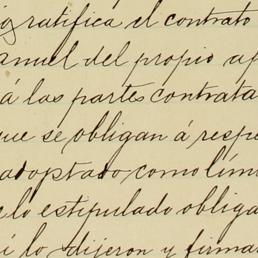 y ratifica el contrato
anuel del propio ap
á las partes contrata
que se obligan á respe
adoptado como lími
e lo estipulado obliga
í lo dijeron y firma